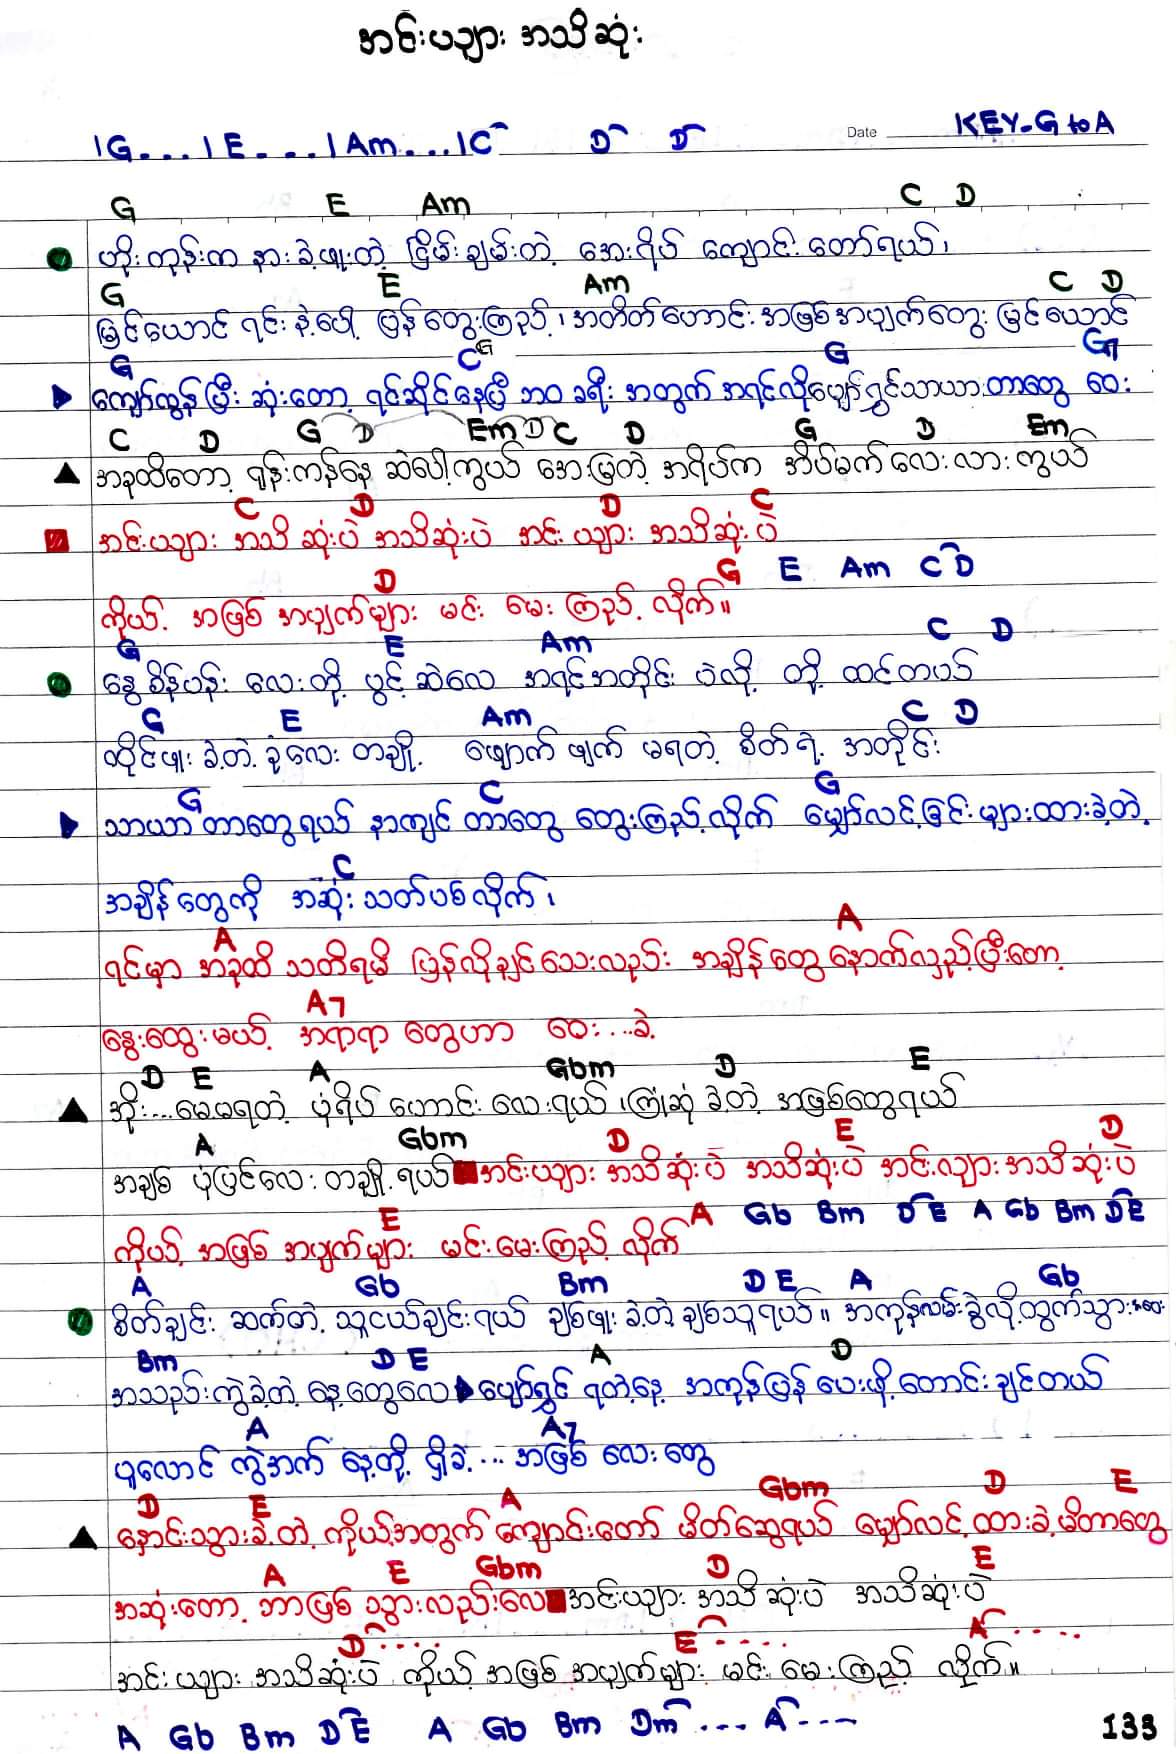 အင်းယျား အသိဆုံး
Date KEY-G to A
|G...|E....|Am....|C D D
G E Am C D
ဟိုးကုန်းက နားခဲ့ဖူးတဲ့ ငြိမ်းချမ်းတဲ့ အေးရိပ် ကျောင်းတော်ရယ်၊
G E Am C D
မြင်ယောင် ရင်းနဲ့ပေါ့ ပြန်တွေးကြည့်၊ အတိတ်ဟောင်း အဖြစ်အပျက်တွေး မြင်ယောင်
G C G G G7
ကျော်လွန်ပြီး ဆုံးတော့ ရင်ဆိုင်နေပြီ ဘဝခရီး အတွက် အရင်လိုပျော်ရွှင်သာယာတာတွေ ဝေး
C D G D Em D C D G D Em
အခုထိတော့ ရုန်းကန်နေ ဆဲပေါ့ကွယ် အေးမြတဲ့ အရိပ်က အိပ်မက်လေးလားကွယ်
C D D C
အင်းယျား အသိဆုံးပဲ အသိဆုံးပဲ အင်းယျား အသိဆုံးပဲ
D G E Am C D
ကိုယ့် အဖြစ်အပျက်များ မင်း မေးကြည့် လိုက်။
G E Am C D
နွေ စိန်ပန်း လေးတို့ ပွင့်ဆဲလေ အရင်အတိုင်း ပဲလို့ တို့ ထင်တယ်
G E Am C D
ထိုင်ဖူးခဲ့တဲ့ ခုံလေး တချို့ ဖျောက်ဖျက် မရတဲ့ စိတ်ရဲ့ အတိုင်း
G C G
သာယာတာတွေရယ် နာကျင်တာတွေ တွေးကြည့်လိုက် မျှော်လင့်ခြင်းများထားခဲ့တဲ့
C
အချိန်တွေကို အဆုံးသတ်ပစ်လိုက်၊
A A
ရင်မှာ အခုထိ သတိရမိ ပြန်လိုချင်သေးလည်း အချိန်တွေနောက်လှည့်ပြီးတော့
A7
နွေးထွေးမယ့် အရာရာ တွေဟာ ဝေး...ခဲ့
D E A Gbm D E
အိုး....မေ့မရတဲ့ ပုံရိပ်ဟောင်းလေးရယ်၊ကြုံဆုံ ခဲ့တဲ့ အဖြစ်တွေရယ်
A Gbm D E D
အချစ် ပုံပြင်လေးတချို့ရယ် အင်းယျား အသိဆုံးပဲ အသိဆုံးပဲ အင်းလျားအသိဆုံးပဲ
E A Gb Bm D E A Gb Bm D E
ကိုယ့်အဖြစ်အပျက်များ မင်းမေးကြည့်လိုက်
A Gb Bm D E A Gb
စိတ်ချင်း ဆက်တဲ့ သူငယ်ချင်းရယ် ချစ်ဖူးခဲ့တဲ့ ချစ်သူရယ်။ အကုန်လမ်းခွဲလို့ထွက်သွား
Bm D E A D
အသည်းကွဲခဲ့တဲ့ နေ့တွေလေ ပျော်ရွှင် ရတဲ့နေ့ အကုန်ပြန် ပေးဖို့ တောင်းချင်တယ်
A A7
ပူလောင် ကွဲအက် နေ့တို့ ရှိခဲ့... အဖြစ်လေးတွေ
D E A Gbm D E
နှောင်းသွားခဲ့တဲ့ ကိုယ့်အတွက် ကျောင်းတော် မိတ်ဆွေရယ် မျှော်လင့်ထားခဲ့မိတာတွေ
A E Gbm D E
အဆုံးတော့ ဘာဖြစ် သွားလည်းလေ အင်းယျား အသိဆုံးပဲ အသိဆုံးပဲ
D..... E..... A.....
အင်းယျား အသိဆုံးပဲ ကိုယ့် အဖြစ်အပျက်များ မင်း မေးကြည့် လိုက်။
A Gb Bm D E A Gb Bm Dm... A...
133